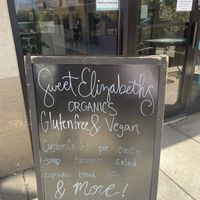 Sweet Elizabeth's
ORGANICS
Glutenfree & Vegan
Custom Cakes pie cookies
soup salad
bread
& More!